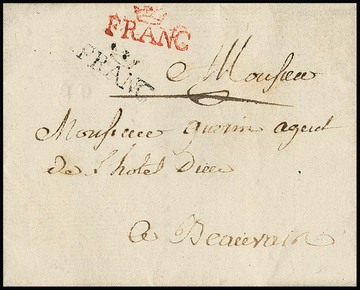 FRANC
FRANC
Monsieur
Monsieur guerin agent
de l'hotel Dieu
a Beauvais